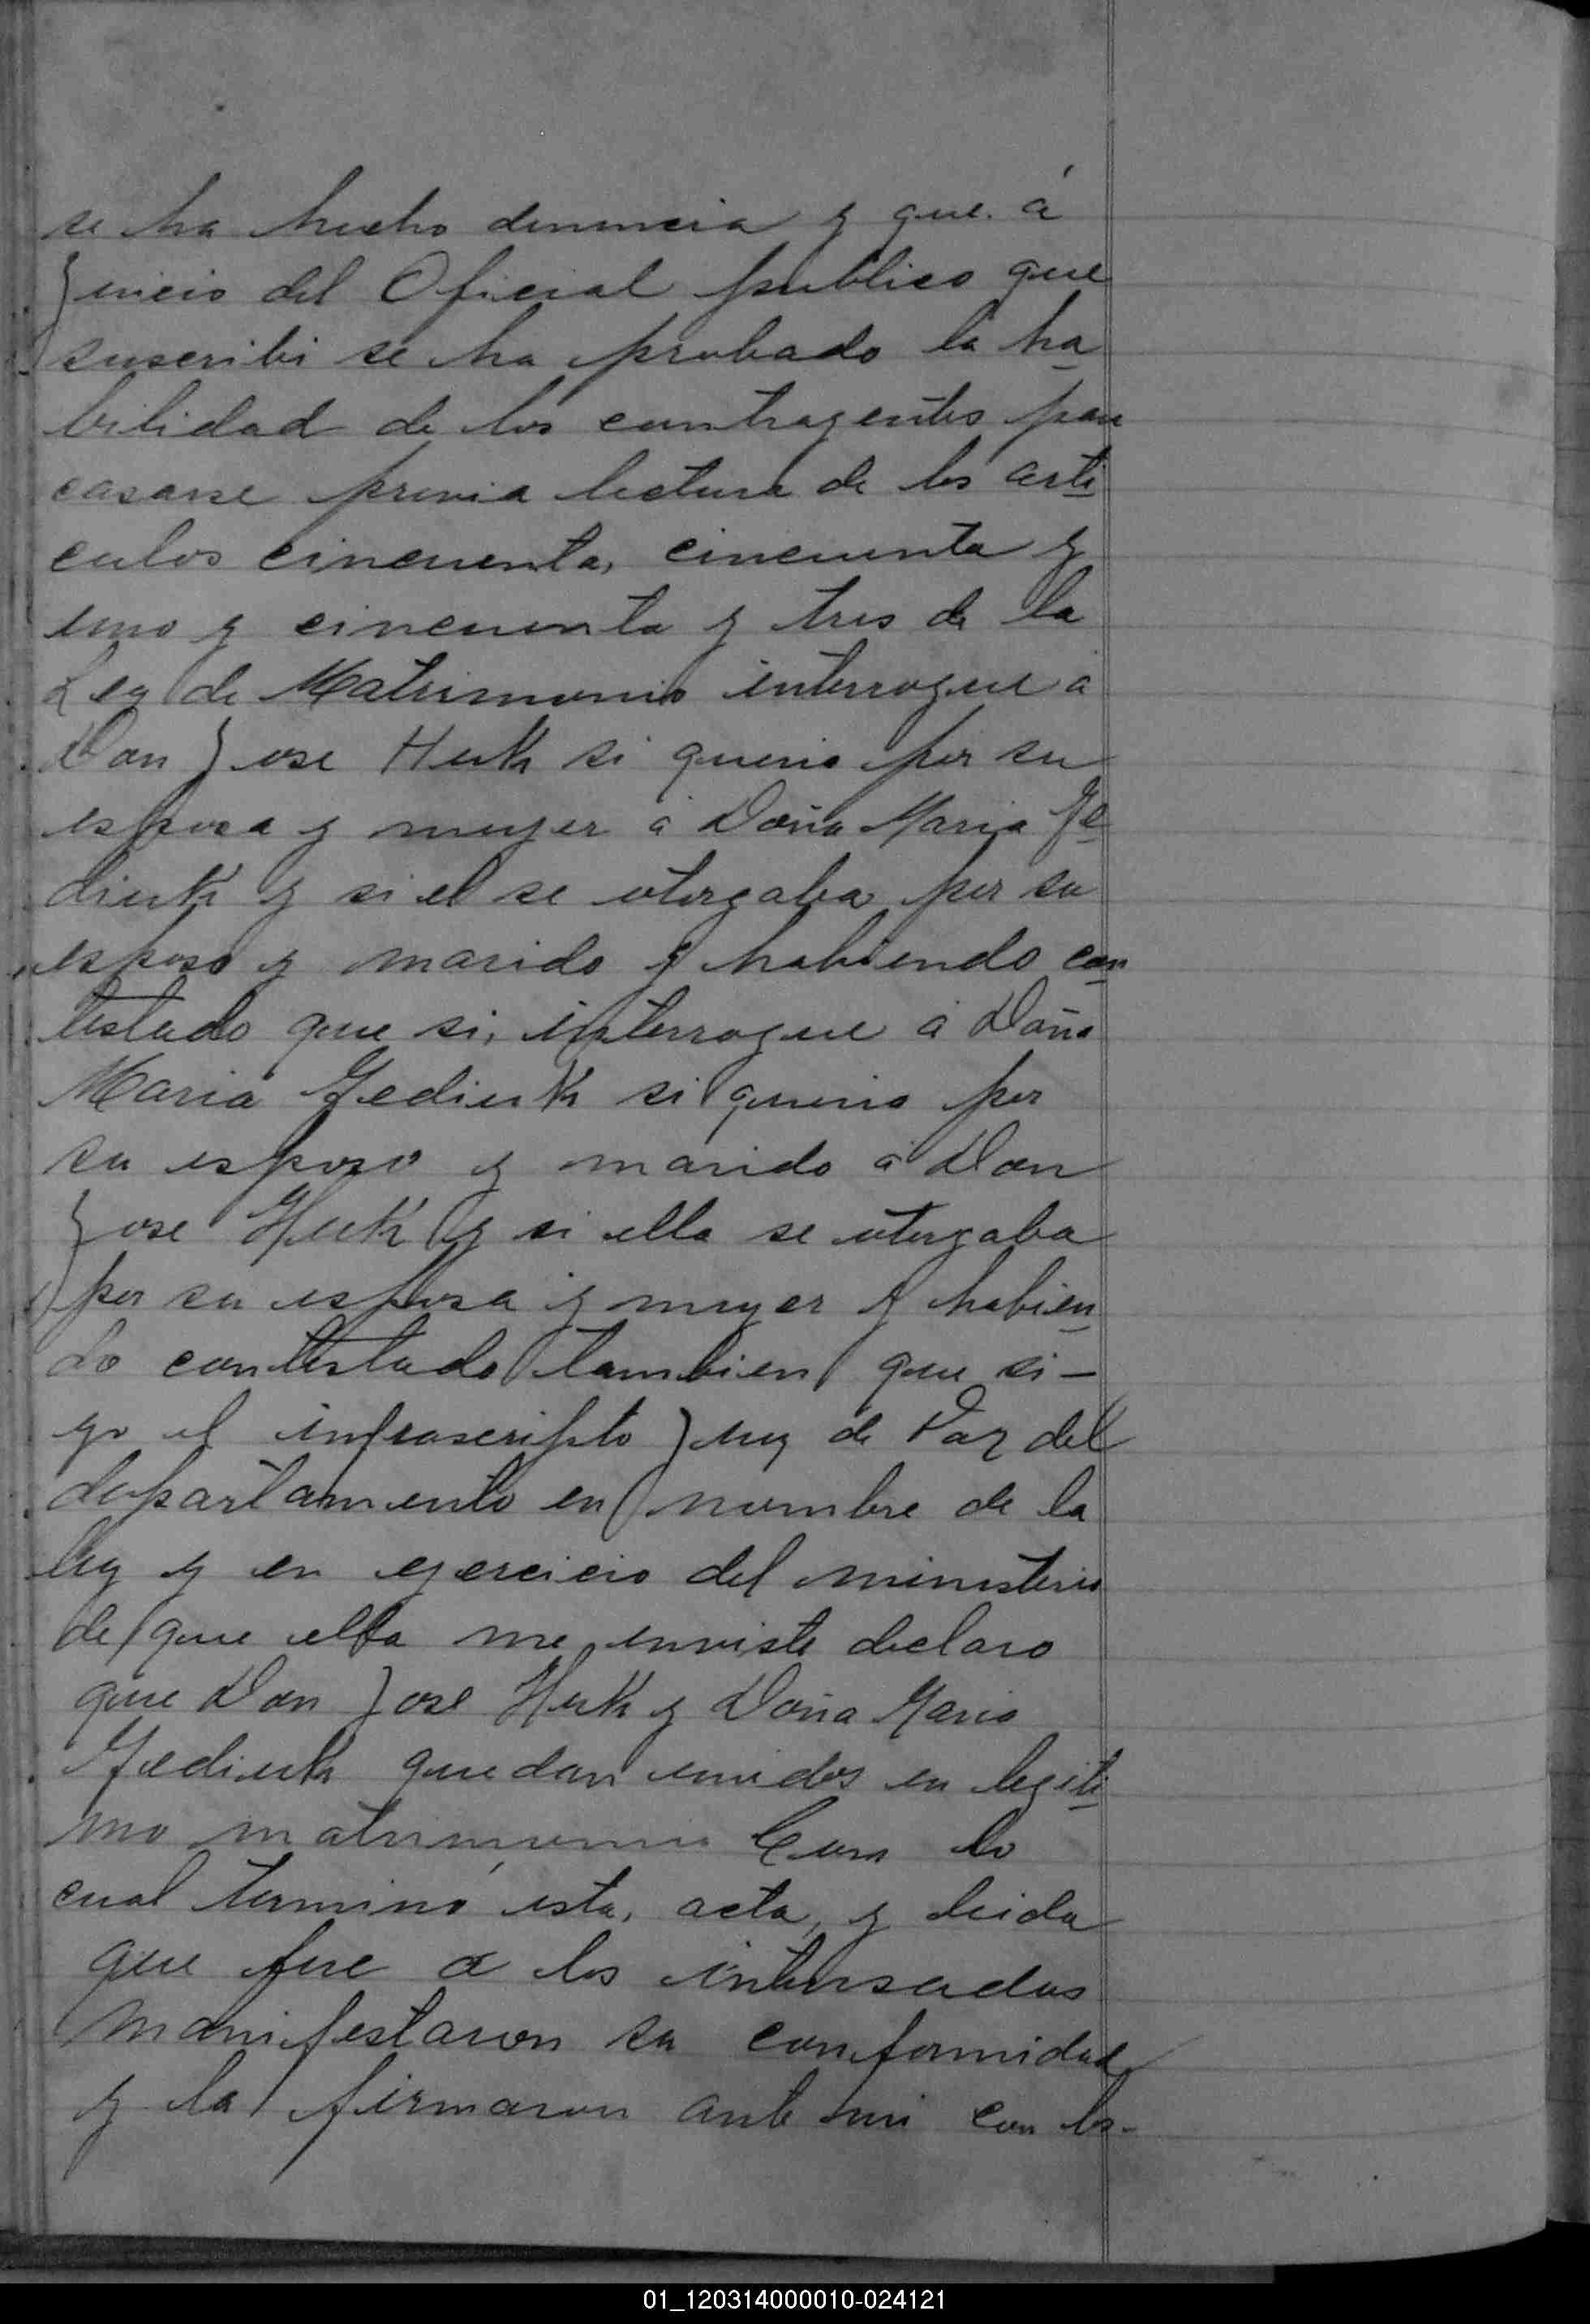 se ha hecho denuncia y que á
Juicio del Oficial publico que
suscribi se ha probado la ha
bilidad de los contrayentes para
casarse previa lectura de los arti
culos cincuenta, cincuenta y
uno y cincuenta y tres de la
Ley de Matrimonio interrogue a
Don Jose Huk si queria por su
esposa y muyer á Doña Maria Ge
diuk y si el se otorgaba por su
esposo y marido y habiendo con
testado que si, interrogue á Doña
Maria Gediuk si queria por
su esposo y marido á Don
Jose Huk y si ella se otorgaba
por su esposa y muyer y habien
do contestado tambien que si –
yo el infrascripto Juez de Paz del
departamento en nombre de la
ley y en ejercicio del ministerio
de que ella me enviste declaro
que Don Jose Huk y Doña Maria
Gediuk quedan unidos en legiti
mo matrimonio Con lo
cual terminó esta, acta, y leida
que fue a los interesados
manifestaron su conformidad
y la firmaron ante mi con los-
01_120314000010-024121